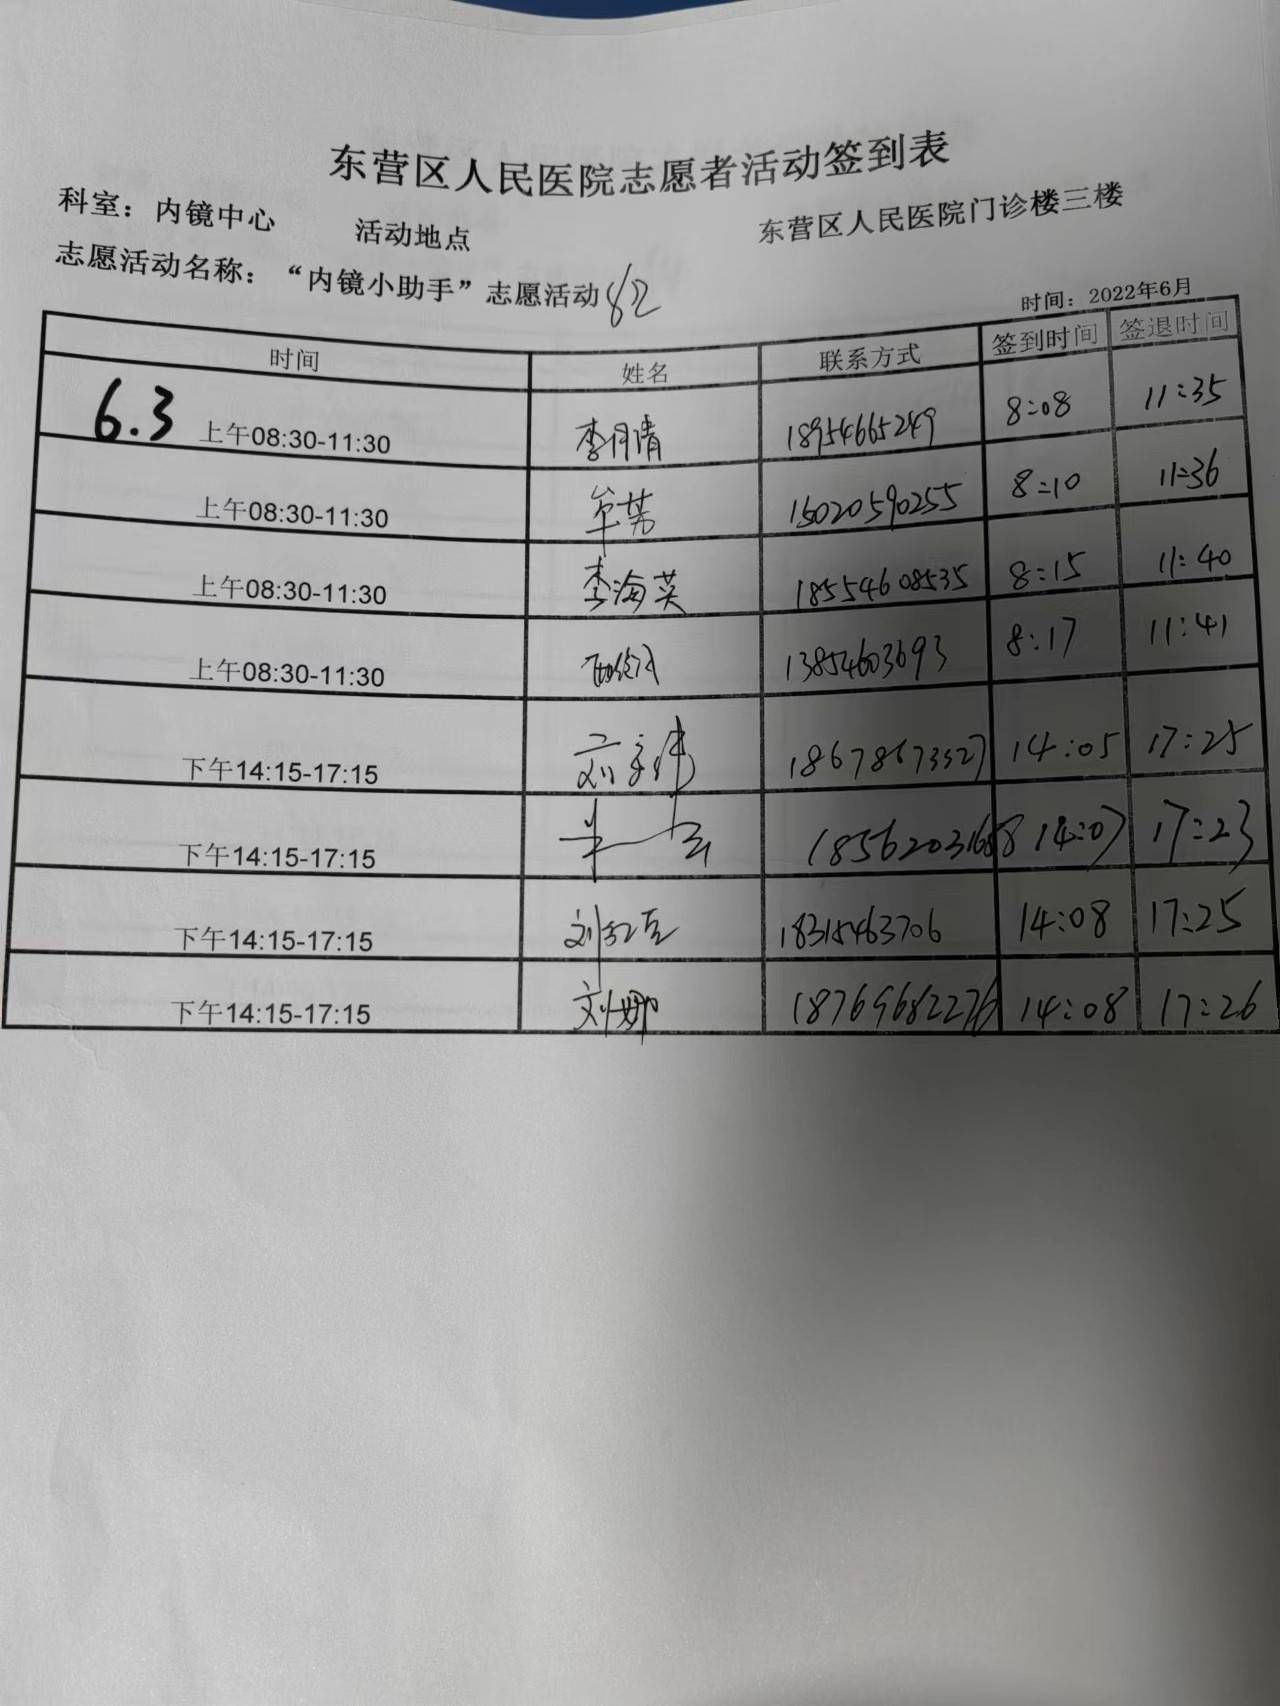 东营区人民医院志愿者活动签到表
科室：内镜中心 活动地点 东营区人民医院门诊楼三楼
志愿活动名称：“内镜小助手”志愿活动82
时间：2022年6月
时间 姓名 联系方式 签到时间 签退时间
6.3 上午08:30-11:30 李月清 18954665249 8:08 11:35
上午08:30-11:30 牟芳 15020590255 8:10 11:36
上午08:30-11:30 李海英 18554608535 8:15 11:40
上午08:30-11:30 13854603693 8:17 11:41
下午14:15-17:15 18678673527 14:05 17:25
下午14:15-17:15 18562031688 14:07 17:23
下午14:15-17:15 18315463706 14:08 17:25
下午14:15-17:15 刘娜 18769682276 14:08 17:26